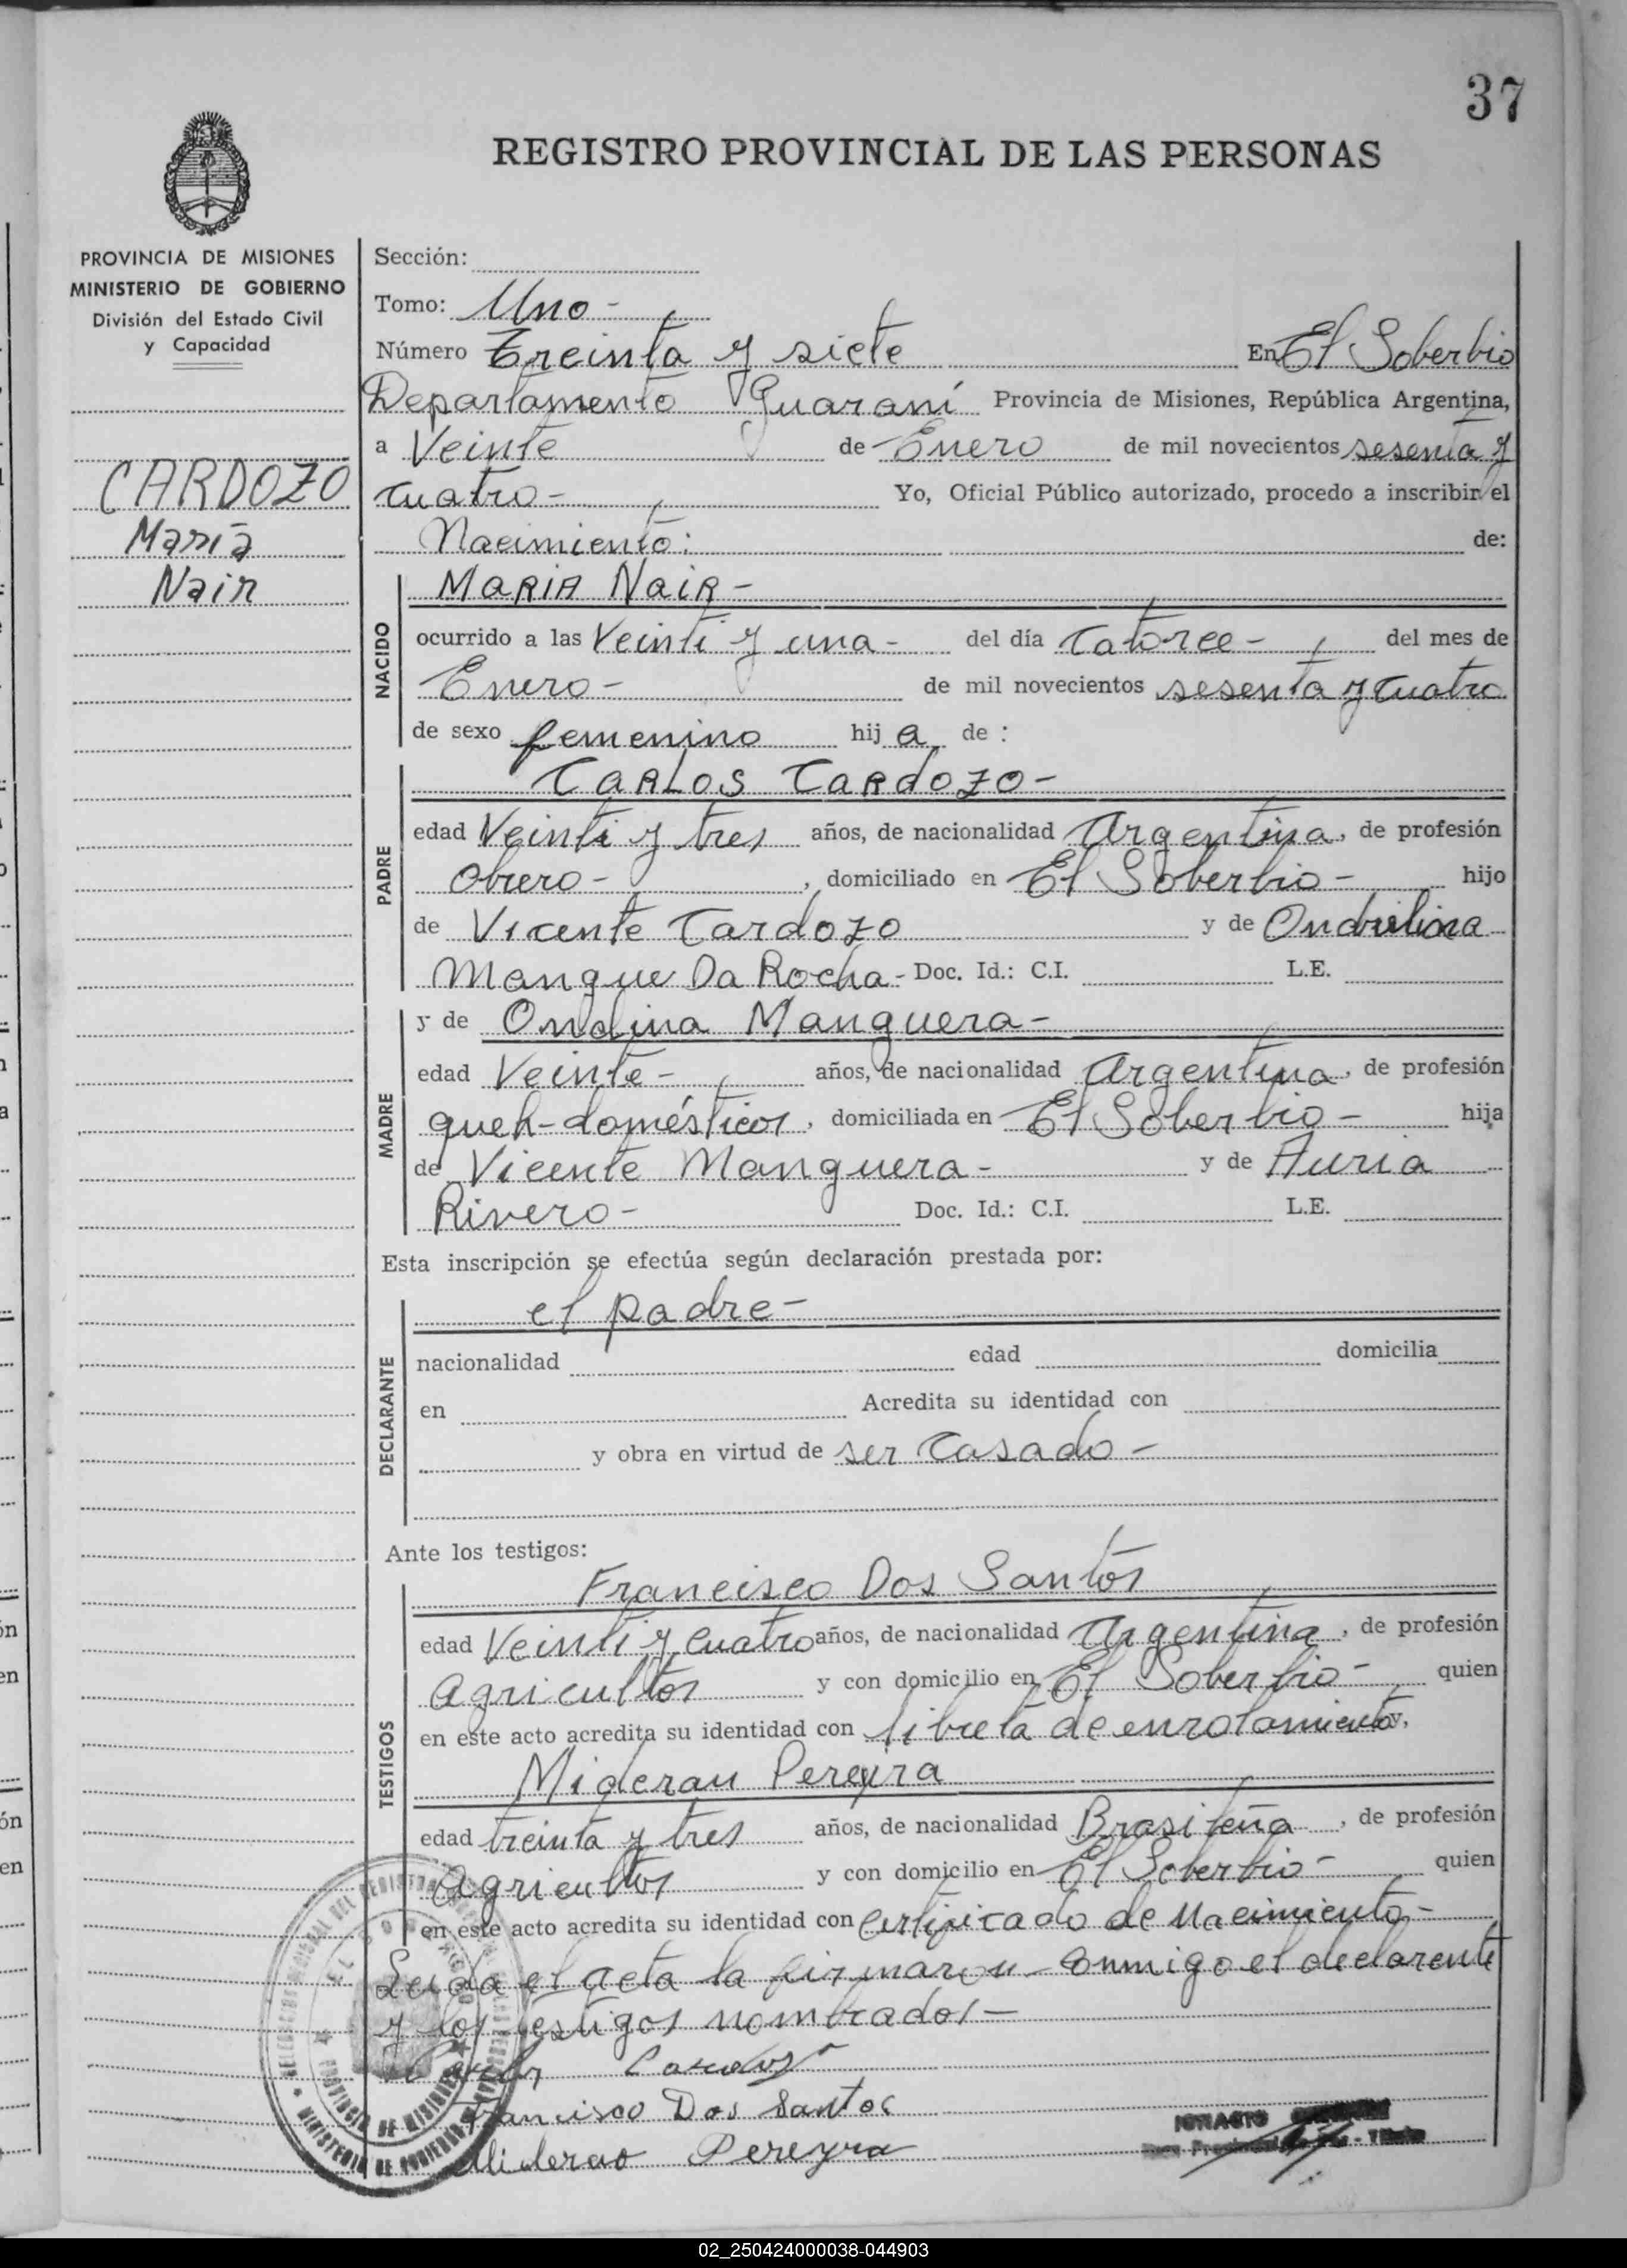 37
REGISTRO PROVINCIAL DE LAS PERSONAS
PROVINCIA DE MISIONES
MINISTERIO DE GOBIERNO
División del Estado Civil
y Capacidad
CARDOZO
María
Nair
Sección:
Tomo: Uno -
Número Treinta y siete En El Soberbio
Departamento Guaraní Provincia de Misiones, República Argentina,
a Veinte de Enero de mil novecientos sesenta y
cuatro - Yo, Oficial Público autorizado, procedo a inscribir el
Nacimiento: de:
NACIDO
MARIA NAIR -
ocurrido a las Veinti y una - del día Catorce - del mes de
Enero - de mil novecientos sesenta y cuatro
de sexo femenino hij a de :
PADRE
CARLOS CARDOZO -
edad Veinti y tres años, de nacionalidad Argentina, de profesión
Obrero - , domiciliado en El Soberbio - hijo
de Vicente Cardozo y de
Mangue Da Rocha - Doc. Id.: C.I. L.E.
MADRE
y de Ondina Manguera -
edad Veinte - años, de nacionalidad Argentina, de profesión
queh-domésticos, domiciliada en El Soberbio - hija
de Vicente Manguera - y de Auria
Rivero - Doc. Id.: C.I. L.E.
Esta inscripción se efectúa según declaración prestada por:
DECLARANTE
el padre -
nacionalidad edad domicilia
en Acredita su identidad con
y obra en virtud de ser Casado -
Ante los testigos:
TESTIGOS
Francisco Dos Santos
edad Veinti y cuatro años, de nacionalidad Argentina, de profesión
Agricultor y con domicilio en El Soberbio - quien
en este acto acredita su identidad con libreta de enrolamiento y,
Miderau Pereyra
edad treinta y tres años, de nacionalidad Brasileña, de profesión
Agricultor y con domicilio en El Soberbio - quien
en este acto acredita su identidad con certificado de nacimiento -
Leida el acta la firmaron conmigo el declarente
y los testigos nombrados -
Francisco Dos Santos
Miderao Pereyra
IGNACIO
PROVINCIA DE MISIONES
02_250424000038-044903